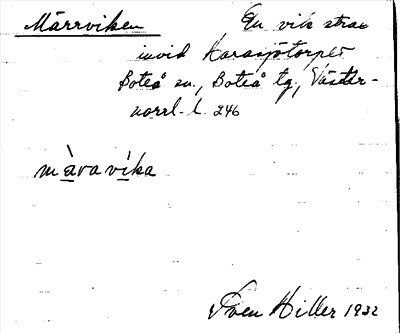 Märrviken En vik strax
invid Karasjötorpet
Boteå sn., Boteå tg, Väster-
norrl. l. 246
màravìka
Sven Hiller 1932